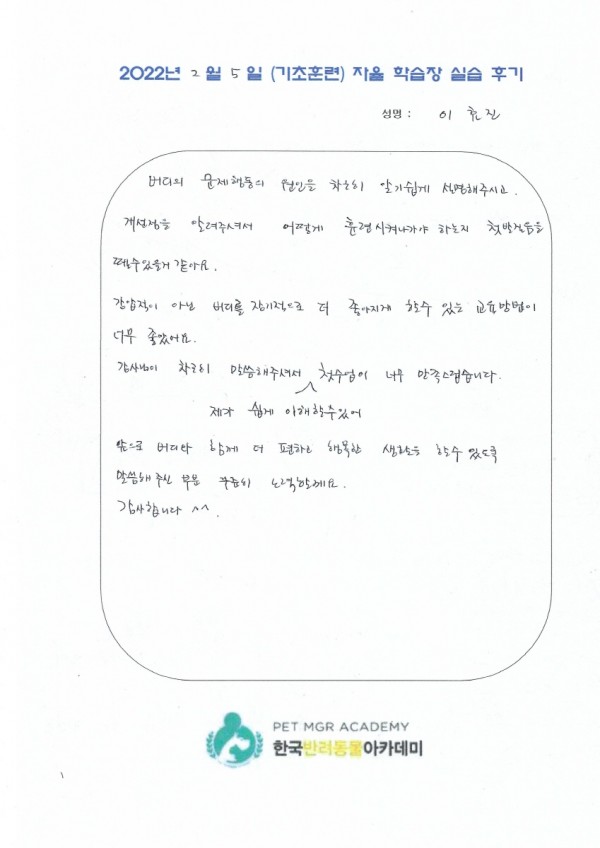 2022년 2월 5일 (기초훈련) 자율 학습장 실습 후기
성명 : 이효진
버디의 문제행동의 원인을 차근히 알기쉽게 설명해주시고.
개선점을 알려주셔서 어떻게 훈련시켜나가야 하는지 첫발걸음을
떼는수있을거 같아요.
강압적이 아닌 버디를 장기적으로 더 좋아지게 할수 있는 교육방법이
너무 좋았어요.
강사님이 차근히 말씀해주셔서 첫수업이 너무 만족스럽습니다.
제가 쉽게 이해할수있어
앞으로 버디와 함께 더 편하고 행복한 생활을 할수 있도록
말씀해 주신 부분 꾸준히 노력할께요.
감사합니다 ^^
PET MGR ACADEMY
한국반려동물아카데미